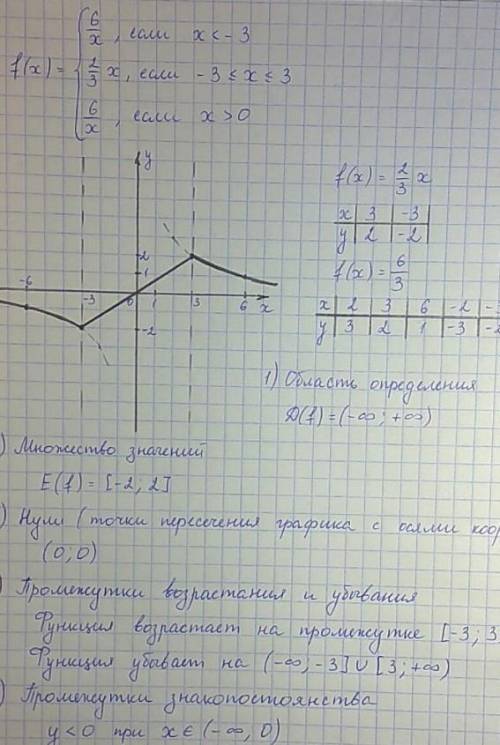 f(x) = { 6/x , если x < - 3
2/3 x, если - 3 ≤ x ≤ 3
6/x , если x > 0
y
f(x) = 2/3 x
x | 3 | -3
y | 2 | -2
f(x) = 6/3
x | 2 | 3 | 6 | -2 | -3
y | 3 | 2 | 1 | -3 | -2
2
1
-6 -3 0 1 3 6 x
-2
1) Область определения
D(f) = (-∞; +∞)
) Множество значений
E(f) = [-2; 2]
) Нули (точки пересечения графика с осями коор
(0; 0)
) Промежутки возрастания и убывания
Функция возрастает на промежутке [-3; 3
Функция убывает на (-∞; -3] ∪ [3; +∞)
) Промежутки знакопостоянства
y < 0 при x ∈ (-∞, 0)